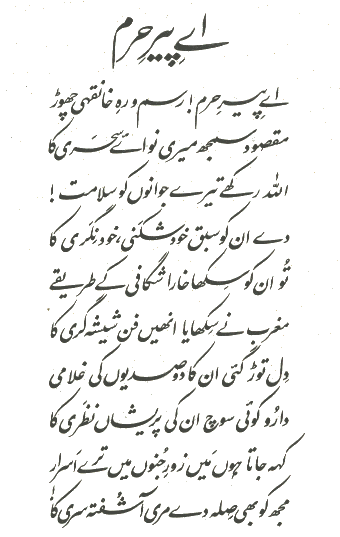 اے پیرِ حرم
اے پیرِ حرم! رسم و رہِ خانقہی چھوڑ
مقصود سمجھ میری نوائے سحری کا
اللہ رکھے تیرے جوانوں کو سلامت!
دے ان کو سبق خود شکنی، خود نگری کا
تُو ان کو سکھا خارا شگافی کے طریقے
مغرب نے سکھایا انھیں فن شیشہ گری کا
دِل توڑ گئی ان کا دو صدیوں کی غلامی
دارُو کوئی سوچ ان کی پریشاں نظَری کا
کہہ جاتا ہوں مَیں زورِ جُنوں میں ترے اَسرار
مجھ کو بھی صِلہ دے مری آشُفتہ سری کا!